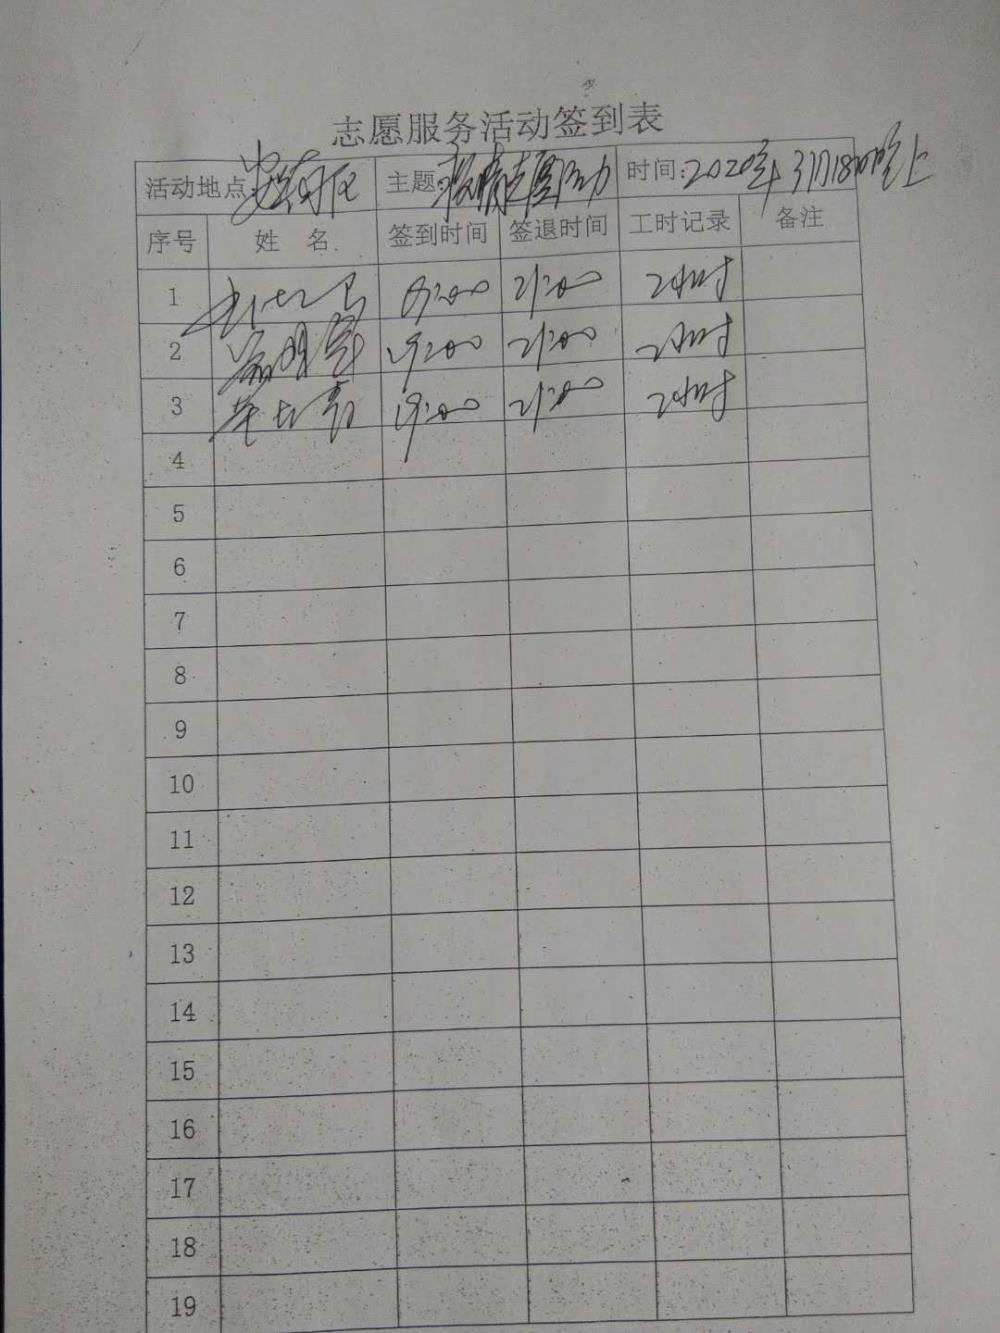 志愿服务活动签到表
活动地点: 主题: 时间:2020年3月18日晚上
序号 姓 名 签到时间 签退时间 工时记录 备注
1 19:00 21:00 2小时
2 19:00 21:00 2小时
3 19:00 21:00 2小时
4
5
6
7
8
9
10
11
12
13
14
15
16
17
18
19